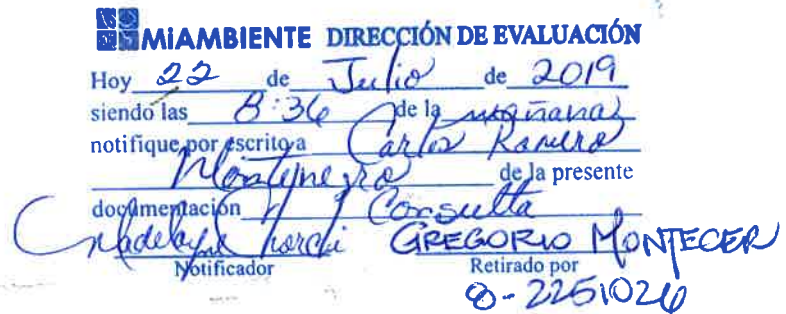 MiAMBIENTE DIRECCIÓN DE EVALUACIÓN
Hoy 22 de Julio de 2019
siendo las 8:36 de la mañana
notifique por escrito a Carlos
Montenegro de la presente
documentación Consulta
GREGORIO MONTECER
Notificador Retirado por
8-2251026